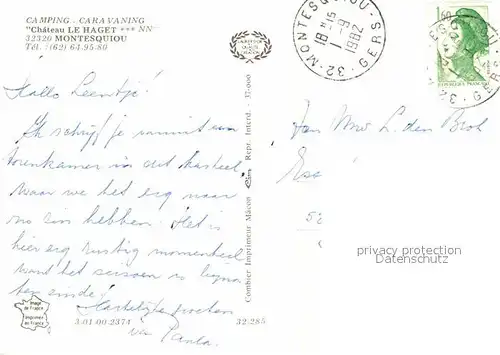 CAMPING - CARAVANING
"Château LE HAGET *** NN"
32320 MONTESQUIOU
Tél. : (62) 64-95-80
SÉLECTION
Hallo Leentje!
Ik schrijf je vanuit een
torenkamer in dit kasteel
waar we het erg naar
ons zin hebben. Het is
hier erg rustig momenteel
want het seizoen is bijna
ten einde!
Hartelijke groeten
van Paula.
Image
de France
Imprimée
en France
3-01-00-2374
32-285
Combier Imprimeur Mâcon
Cim
Repr. Interd. - 37-000
32 - MONTESQUIOU - GERS
18 H 15
1 - 9
1982
1,60
RÉPUBLIQUE FRANÇAISE
32 GERS
Aan Mw L. den Brok
52
privacy protection
Datenschutz